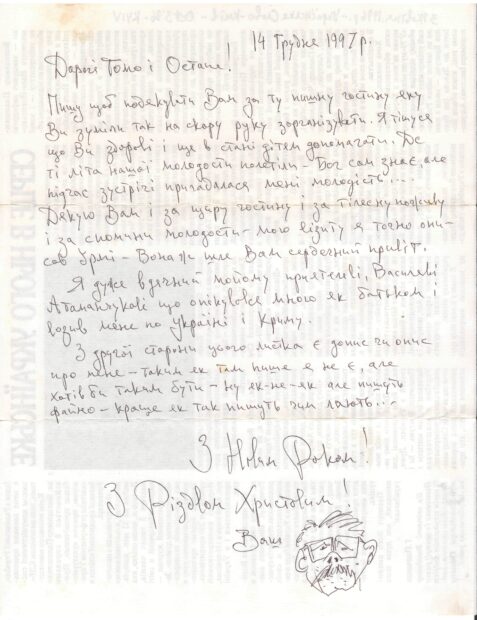 14 Грудне 1997 р.
Дорогі Томо і Остапе!
Пишу щоб подякувати Вам за ту пишну гостину яку
Ви зуміли так на скору руку зорганізувати. Я тішуся
що Ви здорові і ще в стані дітям допомагати. Де
ті літа нашої молодости полетіли – Бог сам знає, але
підчас зустрічі пригадалася мені молодість...
Дякую Вам і за щиру гостину і за тілесну поживу
і за спомини молодости – мою візиту я точно опи-
сав Ірці – Вона ж шле Вам сердечний привіт.
Я дуже вдячний мойому приятелеві, Василеві
Атаманчукові що опікувався мною як батьком і
возив мене по Україні і Криму.
З другої сторони цього листка є допис чи опис
про мене – таким як там пише я не є, але
хотів би таким бути – ну як-не-як але пишуть
файно – краще як так пишуть чим лають...
З Новим Роком!
З Різдвом Христовим!
Ваш
СЕРЦЕ В НЬОГО УКРАЇНСЬКЕ